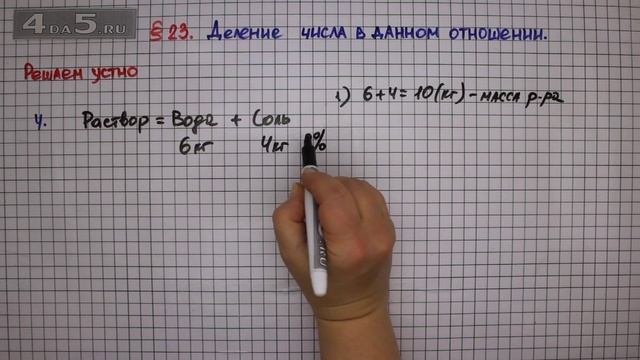 4DA5.RU
§ 23. Деление числа в данном отношении.
Решаем устно
1) 6+4=10(кг)-масса р-ра
4. Раствор = Вода + Соль
6кг 4кг %